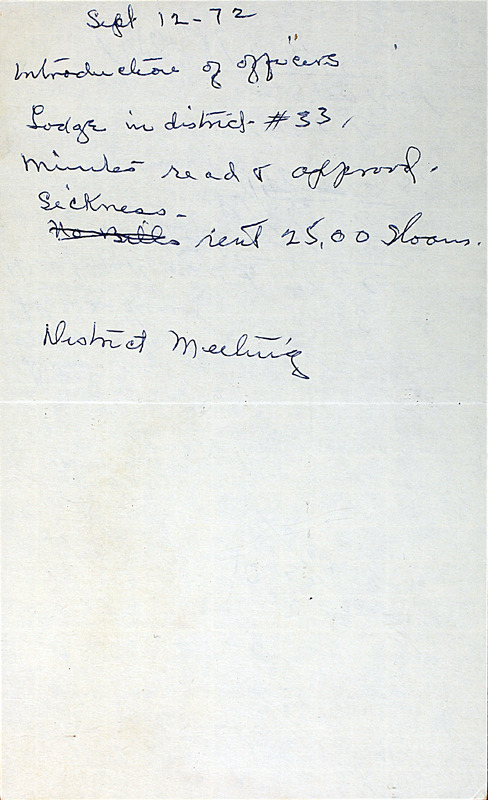 Sept 12-72
Introduction of officers
Lodge in district #33,
Minutes read & approvd.
Sickness -
No Bills rent 25.00 Sloans.
District Meeting